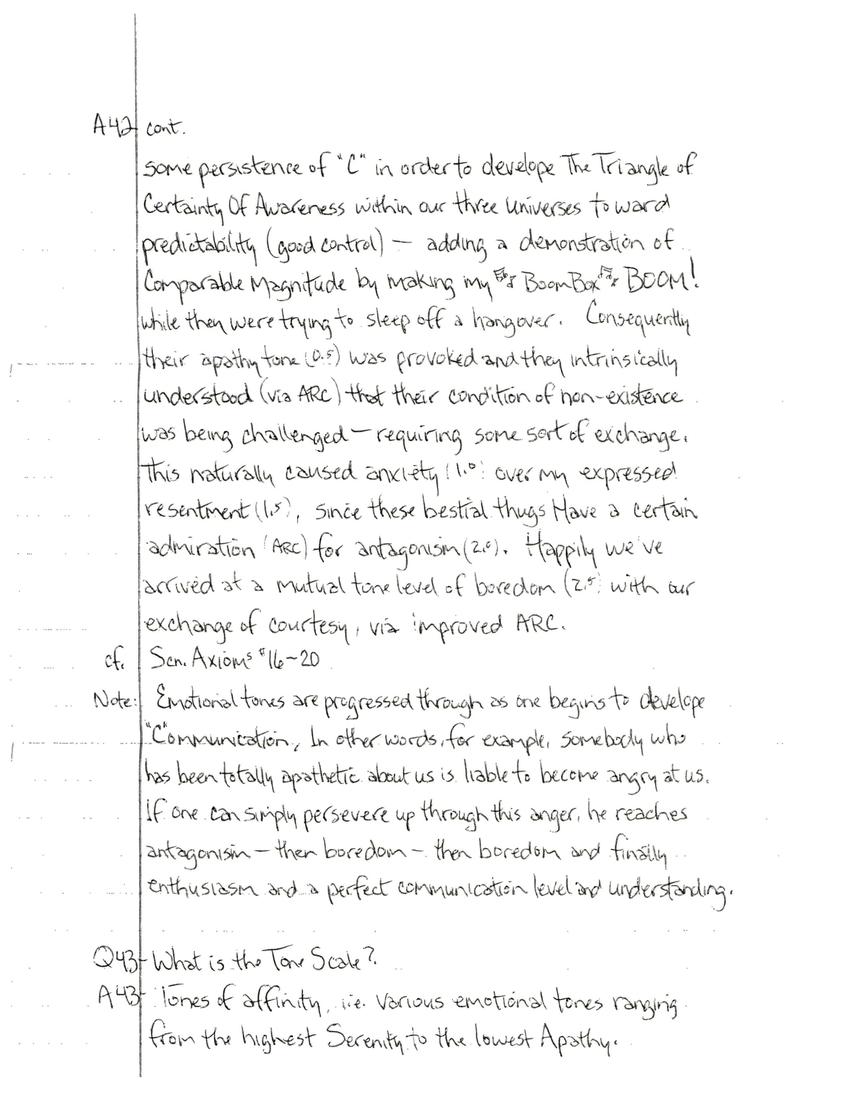 A42 cont.
some persistence of "C" in order to develope The Triangle of
Certainty Of Awareness within our three Universes toward
predictability (good control) — adding a demonstration of
Comparable Magnitude by making my BoomBox BOOM!
while then were trying to sleep off a hangover. Consequently
their apathy tone (0.5) was provoked and they intrinsically
understood (via ARC) that their condition of non-existence
was being challenged — requiring some sort of exchange.
This naturally caused anxiety (1.0) over my expressed
resentment (1.5), since these bestial thugs Have a certain
admiration (ARC) for antagonism (2.0). Happily we've
arrived at a mutual tone level of boredom (2.5) with our
exchange of courtesy, via improved ARC.
cf. Scn. Axioms #16-20
Note: Emotional tones are progressed through as one begins to develope
"C"ommunication, In other words, for example, somebody who
has been totally apathetic about us is liable to become angry at us.
If one can simply persevere up through this anger, he reaches
antagonism - then boredom - then boredom and finally
enthusiasm and a perfect communication level and understanding.
Q43 What is the Tone Scale?
A43 Tones of affinity, i.e. various emotional tones ranging
from the highest Serenity to the lowest Apathy.